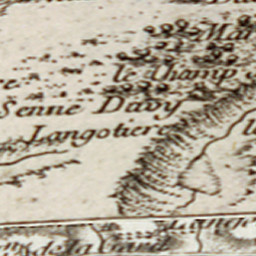 Mar
le Champ
Senne Davy
Langotiere
de la Gard